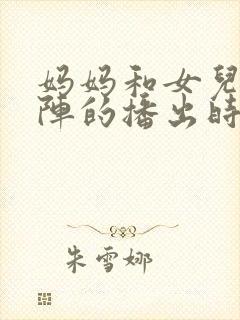 妈妈和女兒
陣的播出時
朱雪娜